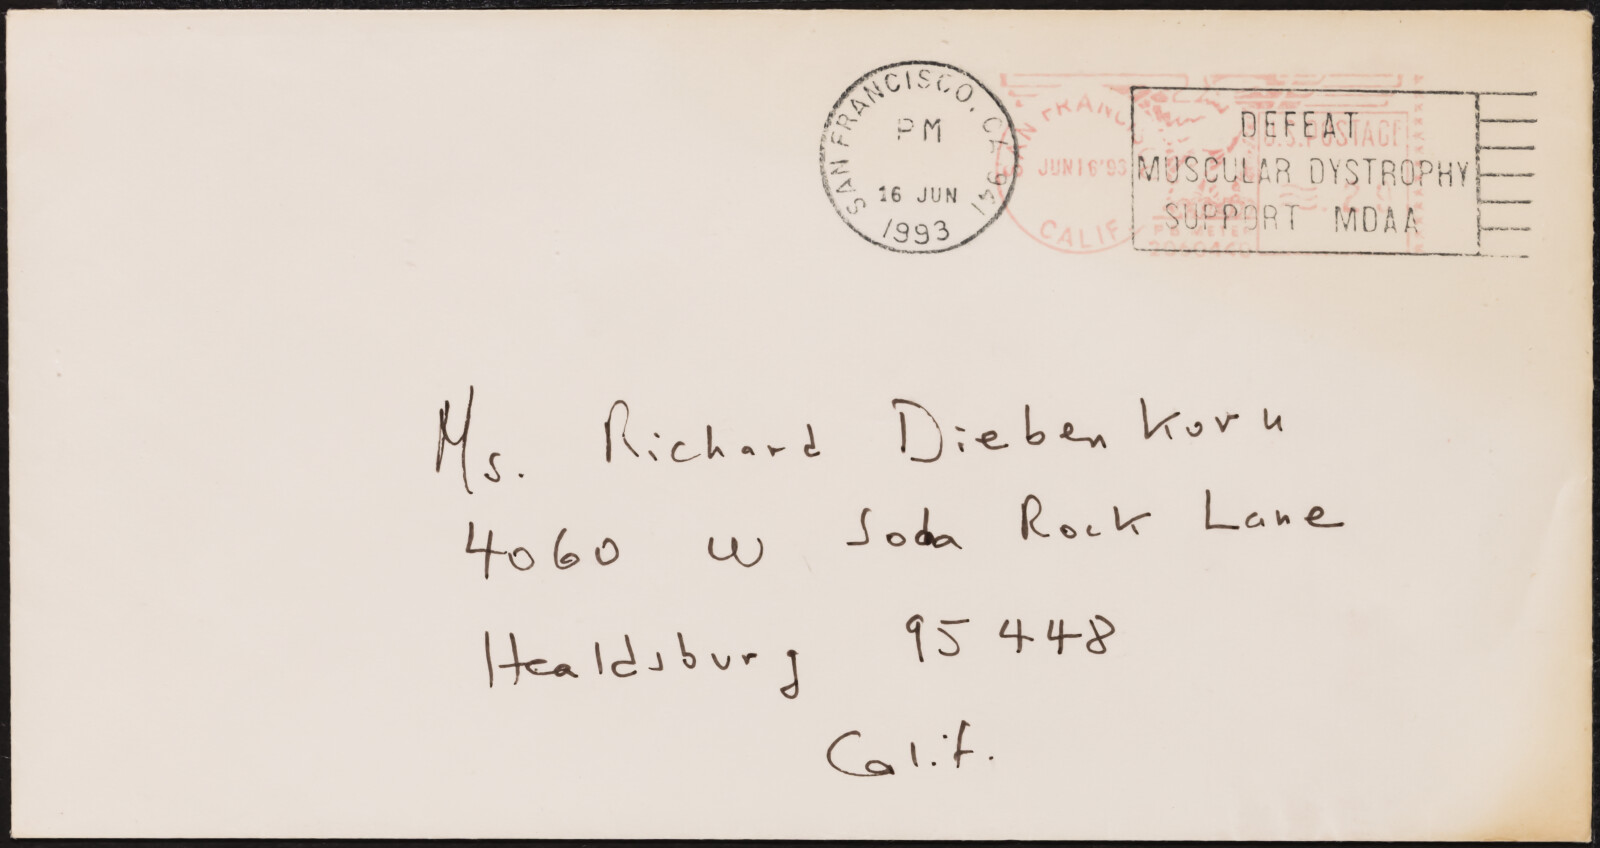 SAN FRANCISCO, CA 941
PM
16 JUN
1993
SAN FRANC
JUN16'93
CALIF
U.S.POSTAGE
PB METER
DEFEAT
MUSCULAR DYSTROPHY
SUPPORT MDAA
Ms. Richard Diebenkorn
4060 W Soda Rock Lane
Healdsburg 95448
Calif.